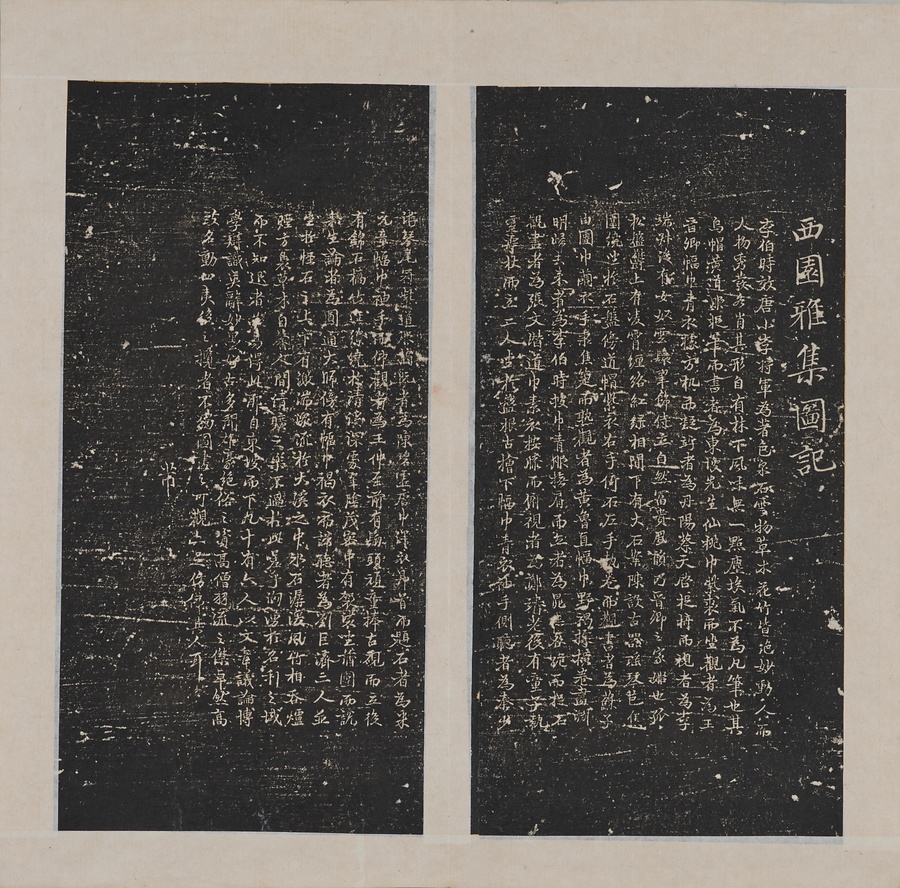 西園雅集圖記
李伯時效唐小李將軍為著色泉石雲物草木花竹皆絕妙動人而
人物秀發各肖其形自有林下風味無一點塵埃氣不為凡筆也其
烏帽黃道服捉筆而書者為東坡先生仙桃巾紫裘而坐觀者為王
晉卿幅巾青衣據方机而凝竚者為丹陽蔡天啓捉椅而視者為李
端叔後有女奴雲鬟翠飾侍立自然富貴風韻乃晉卿之家姬也孤
松盤鬱上有凌霄纏絡紅綠相間下有大石案陳設古器瑤琴芭蕉
圍繞坐於石盤傍道帽紫衣右手倚石左手執卷而觀書者為蘇子
由團巾繭衣手秉蕉箑而熟觀者為黃魯直幅巾野褐據橫卷畫淵
明歸去來者為李伯時披巾青服撫肩而立者為晁无咎跪而捉石
觀畫者為張文潛道巾素衣按膝而俯視者為鄭靖老後有童子執
靈壽杖而立二人坐於盤根古檜下幅巾青衣袖手側聽者為秦少
游琴尾冠紫道服摘阮者為陳碧虛唐巾深衣昂首而題石者為米
元章幅巾袖手而仰觀者為王仲至前有鬅頭頑童捧古硯而立後
有錦石橋竹逕繚繞於清溪深處翠陰茂密中有袈裟坐蒲團而說
無生論者為圓通大師傍有幅巾褐衣而諦聽者為劉巨濟二人並
坐於怪石之上下有激湍潨流於大溪之中水石潺湲風竹相吞爐
煙方裊草木自馨人間清曠之樂不過於此嗟乎洶湧於名利之域
而不知退者豈易得此耶自東坡而下凡十有六人以文章議論博
學辨識英辭妙墨好古多聞雄豪絕俗之資高僧羽流之傑卓然高
致名動四夷後之攬者不獨圖畫之可觀亦足仿佛其人耳
芾